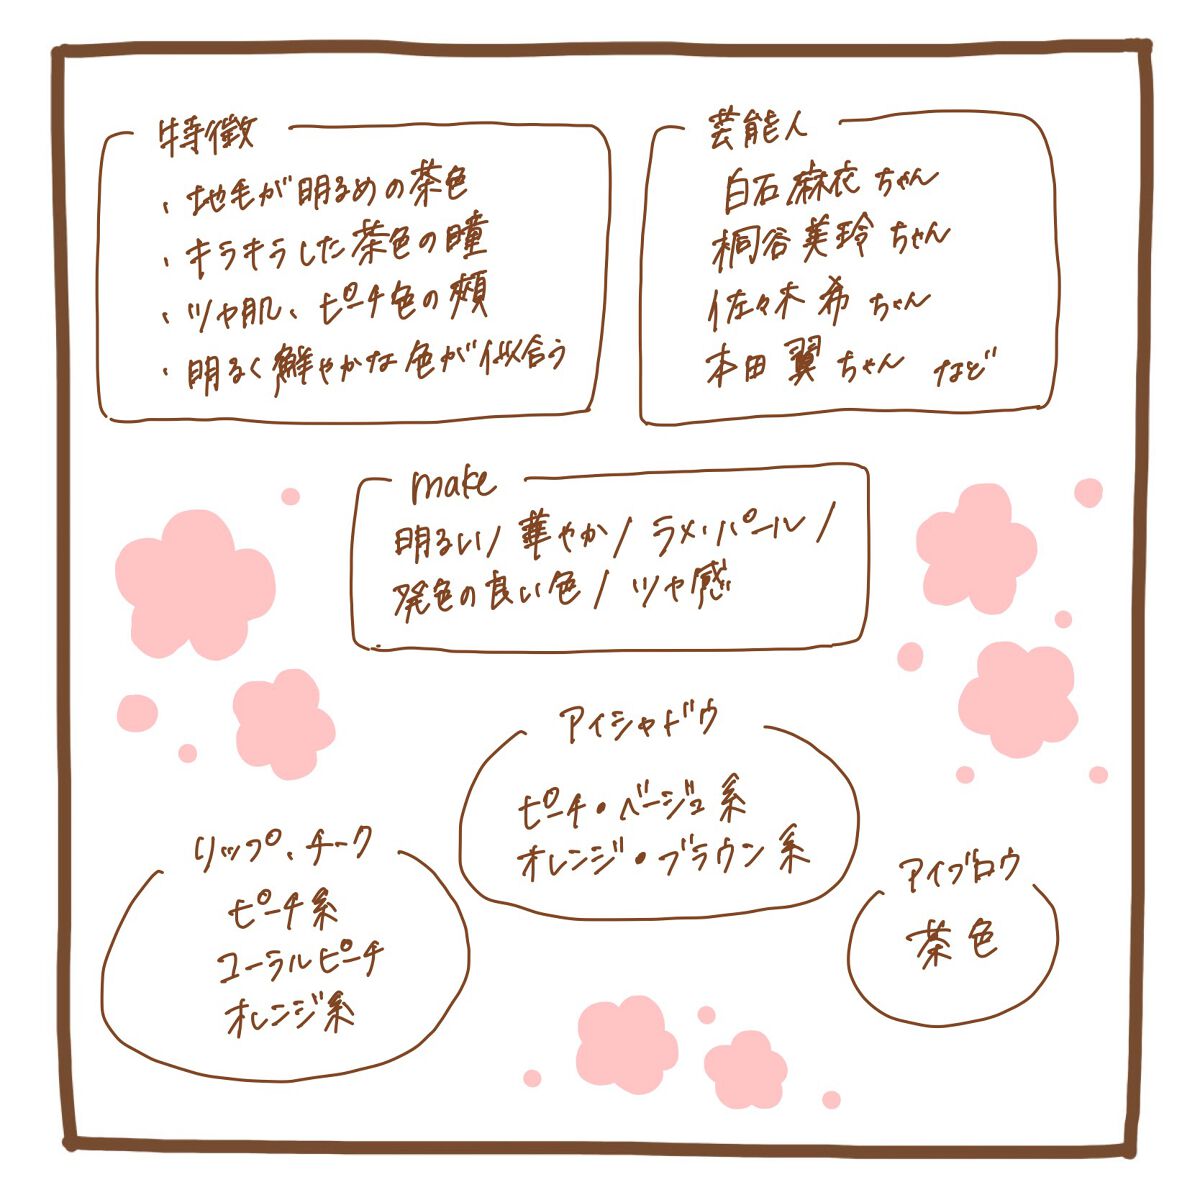 特徴
・地毛が明るめの茶色
・キラキラした茶色の瞳
・ツヤ肌、ピーチ色の頬
・明るく鮮やかな色が似合う
芸能人
白石麻衣ちゃん
桐谷美玲ちゃん
佐々木希ちゃん
本田翼ちゃん など
make
明るい/華やか/ラメ・パール/
発色の良い色/ツヤ感
アイシャドウ
ピーチ・ベージュ系
オレンジ・ブラウン系
リップ、チーク
ピーチ系
コーラルピーチ
オレンジ系
アイブロウ
茶色